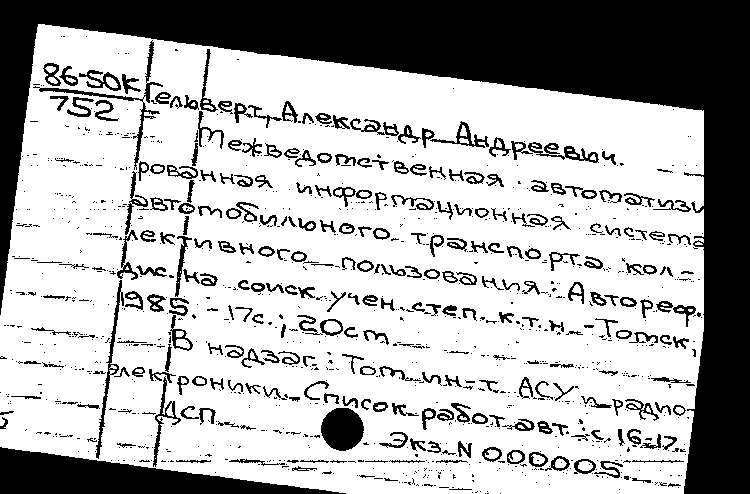 86-50К Гельверт, Александр Андреевич.
752
Межведомственная автоматизи
рованная информационная система
автомобильного транспорта кол-
лективного пользования: Автореф.
дис. на соиск. учен. степ. к.т.н. - Томск,
1985. - 17с.; 20см.
В надзаг.: Том. ин-т АСУ и радио-
электроники. Список работ авт.: с. 16-17.
ДСП
Экз. N 000005.
5